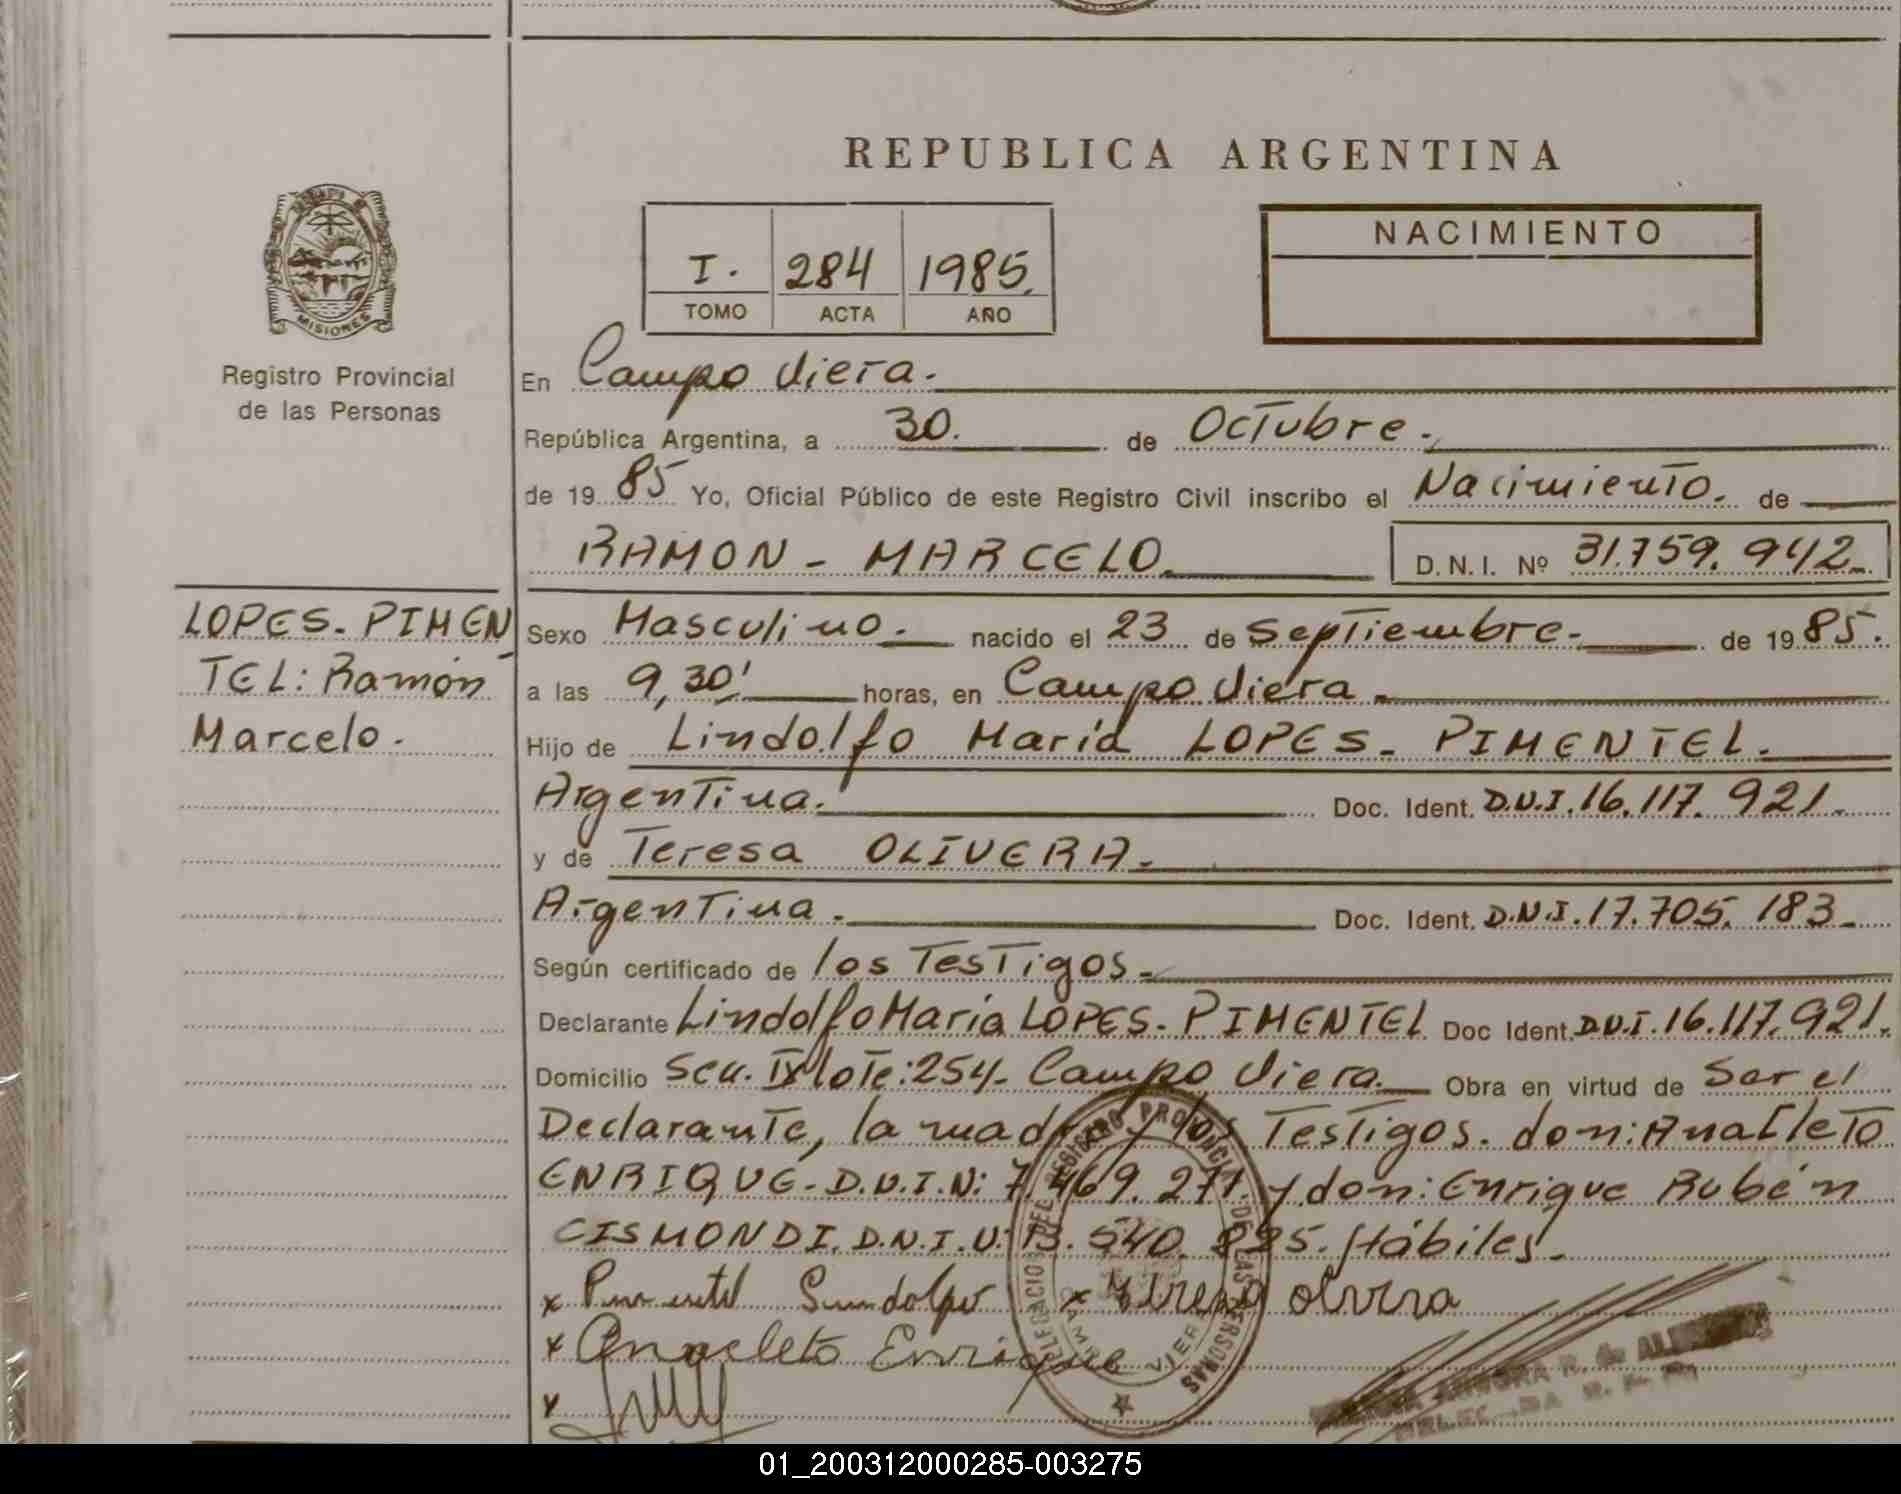 REPUBLICA ARGENTINA
NACIMIENTO
I. 284 1985.
TOMO ACTA AÑO
MISIONES
Registro Provincial
de las Personas
En Campo Viera.
República Argentina, a 30. de Octubre.
de 19 85 Yo, Oficial Público de este Registro Civil inscribo el Nacimiento. de
RAMON - MARCELO. D.N.I. Nº 31.759.942.
LOPES- PIMEN
TEL: Ramón
Marcelo.
Sexo Masculino. nacido el 23 de Septiembre. de 19 85.
a las 9,30' horas, en Campo Viera.
Hijo de Lindolfo María LOPES- PIMENTEL.
Argentina. Doc. Ident. D.N.I. 16.117.921.
y de Teresa OLIVERA.
Argentina. Doc. Ident. D.N.I. 17.705.183.
Según certificado de los Testigos.
Declarante Lindolfo María LOPES- PIMENTEL Doc Ident. D.N.I. 16.117.921.
Domicilio Scc. IX lote: 254- Campo Viera. Obra en virtud de Ser el
Declarante, la madre y los Testigos. don: Anacleto
ENRIQUE- D.N.I.N: 7.469.271. y don: Enrique Rubén
CISMONDI. D.N.I.N: 13.540.895. Hábiles.
x Pimentel Lindolfo x Teresa Olivera
x Anacleto Enrique
x
DELEGACION DEL REGISTRO PROVINCIAL DE LAS PERSONAS
CAMPO VIERA
01_200312000285-003275